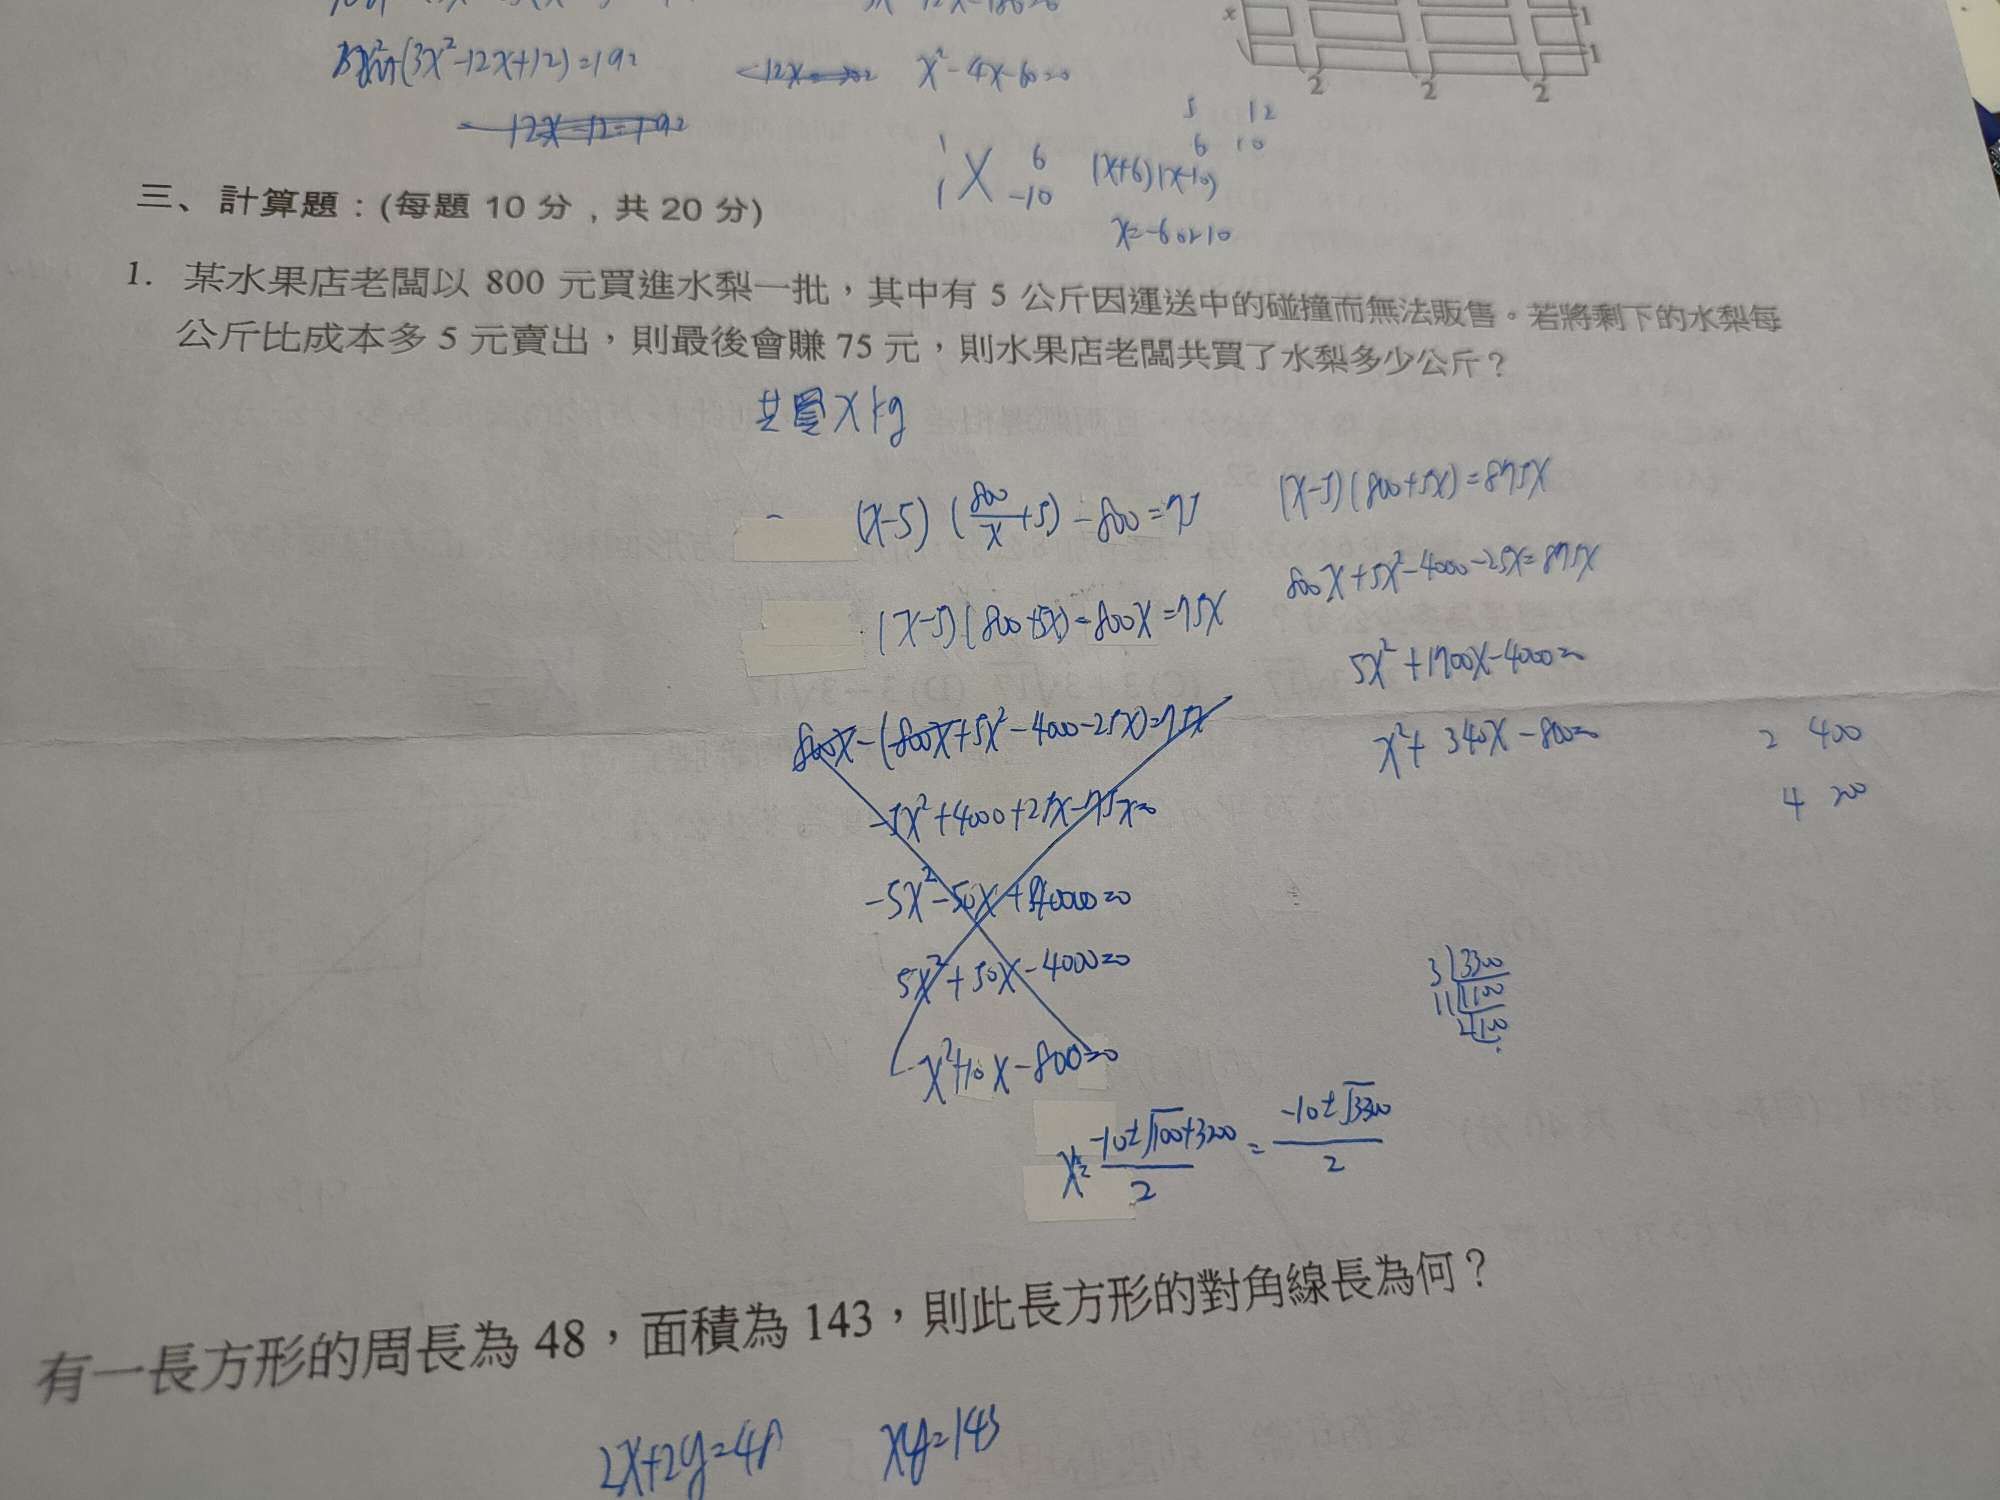 (3x²-12x+12)=192
x²-4x-60=0
x
1
1
2
2
2
12x-12=192
5 12
6 10
1 6
1 -10
(x+6)(x-10)
x=-6 or 10
三、計算題：(每題 10 分，共 20 分)
1. 某水果店老闆以 800 元買進水梨一批，其中有 5 公斤因運送中的碰撞而無法販售。若將剩下的水梨每
公斤比成本多 5 元賣出，則最後會賺 75 元，則水果店老闆共買了水梨多少公斤？
共買 x kg
(x-5) (800/x+5) -800=75
(x-5)(800+5x)-800x=75x
800x-(800x+5x²-4000-25x)=75x
-5x²+4000+25x-75x=0
-5x²-50x+4000=0
5x²+50x-4000=0
x²+10x-800=0
x=(-10±√100+3200)/2 = (-10±√3300)/2
(x-5)(800+5x)=875x
800x+5x²-4000-25x=875x
5x²+1700x-4000=0
x²+340x-800=0
2 400
4 200
3 3300
11 1100
100
有一長方形的周長為 48，面積為 143，則此長方形的對角線長為何？
2x+2y=48 xy=143